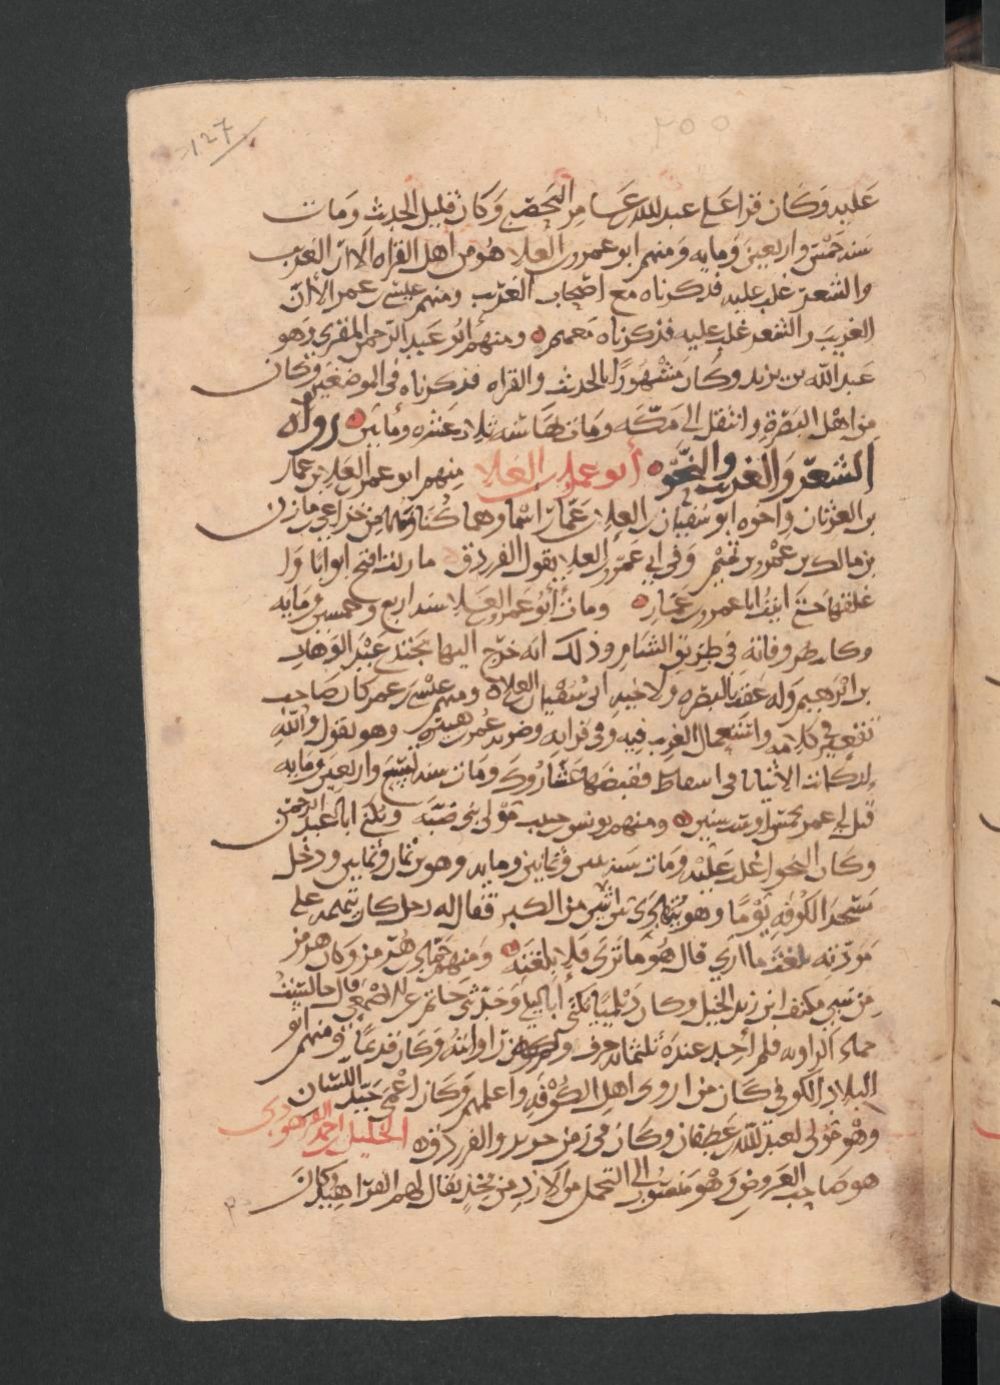 127
٢٥٥
عليه وكان قرا على عبد الله بن عامر اليحصبي وكان قليل الحديث ومات
سنه خمس واربعين ومايه ومنهم ابو عمرو بن العلا هو من اهل القراه الا ان الغريب
والشعر غلب عليه فذكرناه مع اصحاب الغريب ومنهم عيسى بن عمر الا ان
الغريب والشعر غلب عليه فذكرناه معهم ومنهم ابو عبد الرحمن المقري وهو
عبد الله بن يزيد وكان مشهورا بالحديث والقراه فذكرناه في الموضعين وكان
من اهل البصرة وانتقل الى مكه ومات بها سنه ثلاث عشره ومايتين رواه
الشعر والغريب والنحو أبو عمرو بن العلا منهم ابو عمرو بن العلا بن عمار
بن العريان واخوه ابو سفيان بن العلا بن عمار اسماوهما كناوهما من خزاعي مازن
بن مالك بن عمرو بن تميم وفي ابي عمرو بن العلا يقول الفرزدق ما زلت افتح ابوابا وا
غلقها حتى اتيت ابا عمرو بن عمار ومات أبو عمرو بن العلا سنه اربع وخمسين ومايه
وكانت وفاته في طريق الشام وذلك انه خرج اليها يجتدي عبد الوهاب
بن ابرهيم وله عقب بالبصره ولاخيه ابي سفيان بن العلا ومنهم عيسى بن عمر كان صاحب
تقعير في كلامه واستعمال الغريب فيه وفي قرايه وضربه عمر بن هبيره وهو يقول والله
ان كانت الا اثيابا في اسفاط فقبضها عشاروك ومات سنه تسع واربعين ومايه
قبل ابي عمرو بخمس او ست سنين ومنهم يونس بن حبيب مولى بني ضبه ويكنى ابا عبد الرحمن
وكان النحو اغلب عليه ومات سنه وثمانين ومايه وهو بن ثمان وثمانين ودخل
مسجد الكوفه يوما وهو يتهادى بين اثنين من الكبر فقال له رجل كان يتهمه على
مودته بلغت ما ارى قال هو ما ترى فلا بلغته ومنهم حماد بن هرمز وكان هرمز
من سبي مكنف ابن زيد الخيل وكان ديلميا يكنى أبا ليلى وحدثني حاتم عن الاصمعي قال جالست
حماد الراويه فلم أجد عنده ثلثمايه حرف ولم ارض روايته وكان قديما ومنهم ابو
البلاد الكوفي كان من اروى اهل الكوفه واعلمهم وكان اعمى جيد اللسان
وهو مولى لعبد الله بن غطفان وكان في زمن جرير والفرزدق الخليل بن احمد الفرهودي
هو صاحب العروض وهو منسوب الى التحمل من الازد من فخذ يقال لهم الفراهيد كان